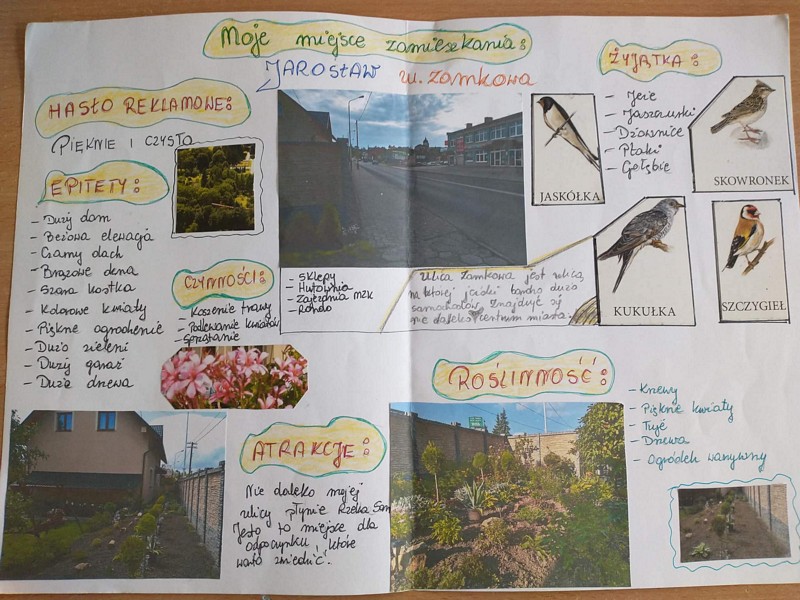 Moje miejsce zamieszkania:
JAROSŁAW ul. ZAMKOWA
HASŁO REKLAMOWE:
PIĘKNIE I CZYSTO
EPITETY:
- Duży dom
- Beżowa elewacja
- Czarny dach
- Brązowe okna
- Szara kostka
- Kolorowe kwiaty
- Piękne ogrodzenie
- Dużo zieleni
- Duży garaż
- Duże drzewa
CZYNNOŚCI:
- Koszenie trawy
- Podlewanie kwiatów
- Sprzątanie
- Sklepy
- Hutownia
- Zajezdnia MZK
- Rondo
Ulica Zamkowa jest ulicą,
na której jeździ bardzo dużo
samochodów, znajduje się
nie daleko centrum miasta.
ŻYJĄTKA:
- Jeże
- Jaszczurki
- Dżownice
- Ptaki
- Gołębie
JASKÓŁKA
SKOWRONEK
KUKUŁKA
SZCZYGIEŁ
ATRAKCJE:
Nie daleko mojej
ulicy płynie Rzeka San
Jest to miejsce dla
odpoczynku, które
warto zwiedzić!
ROŚLINNOŚĆ:
- Krzewy
- Piękne kwiaty
- Tuje
- Drzewa
- Ogródek warzywny